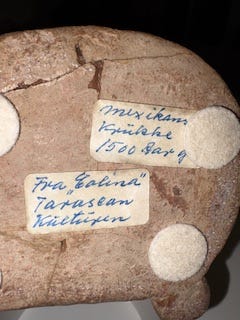 Mexikansk
Krukke
1500 Aar g
Fra "Colina"
Tarascan
Kulturen